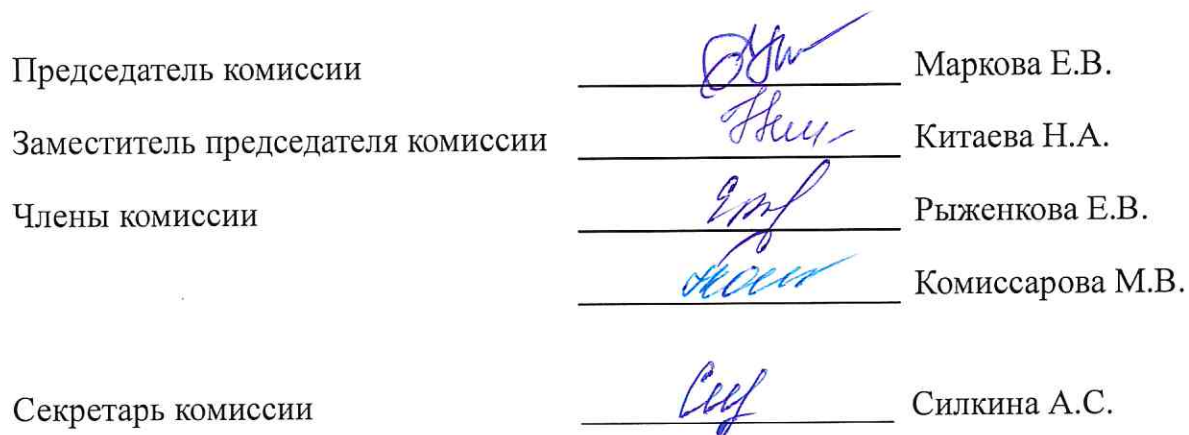 Председатель комиссии Маркова Е.В.
Заместитель председателя комиссии Китаева Н.А.
Члены комиссии Рыженкова Е.В.
Комиссарова М.В.
Секретарь комиссии Силкина А.С.